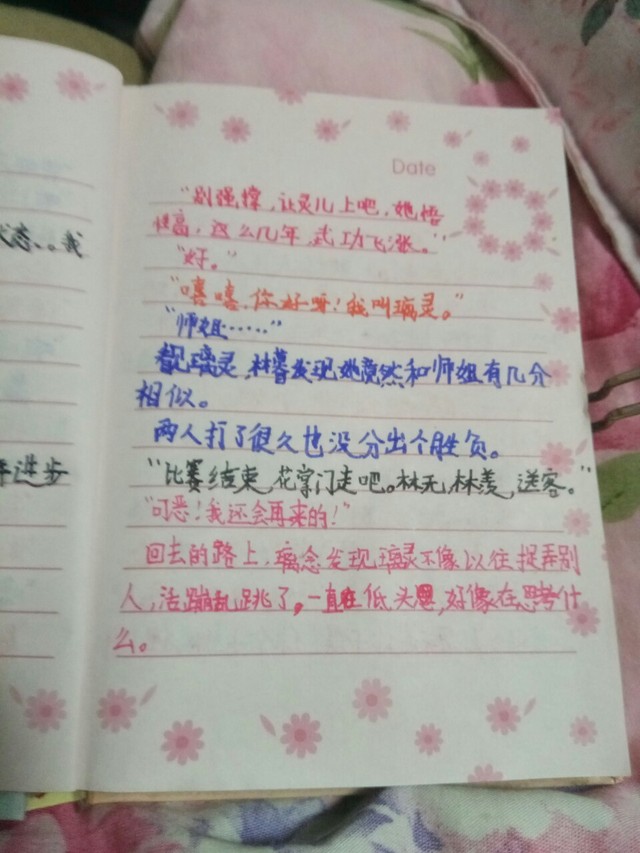 状态、。我
年进步
Date
"别强撑，让灵儿上吧，她悟
性高，这么几年，武功飞涨。"
"好。"
"嘻嘻，你好呀！我叫璃灵。"
"师姐……"
看见璃灵，林暮发现她竟然和师姐有几分
相似。
两人打了很久也没分出个胜负。
"比赛结束，花掌门走吧。林无，林羡，送客。"
"可恶！我还会再来的！"
回去的路上，璃念发现璃灵不像以往捉弄别
人，活蹦乱跳了，一直在低头思，好像在思考什
么。